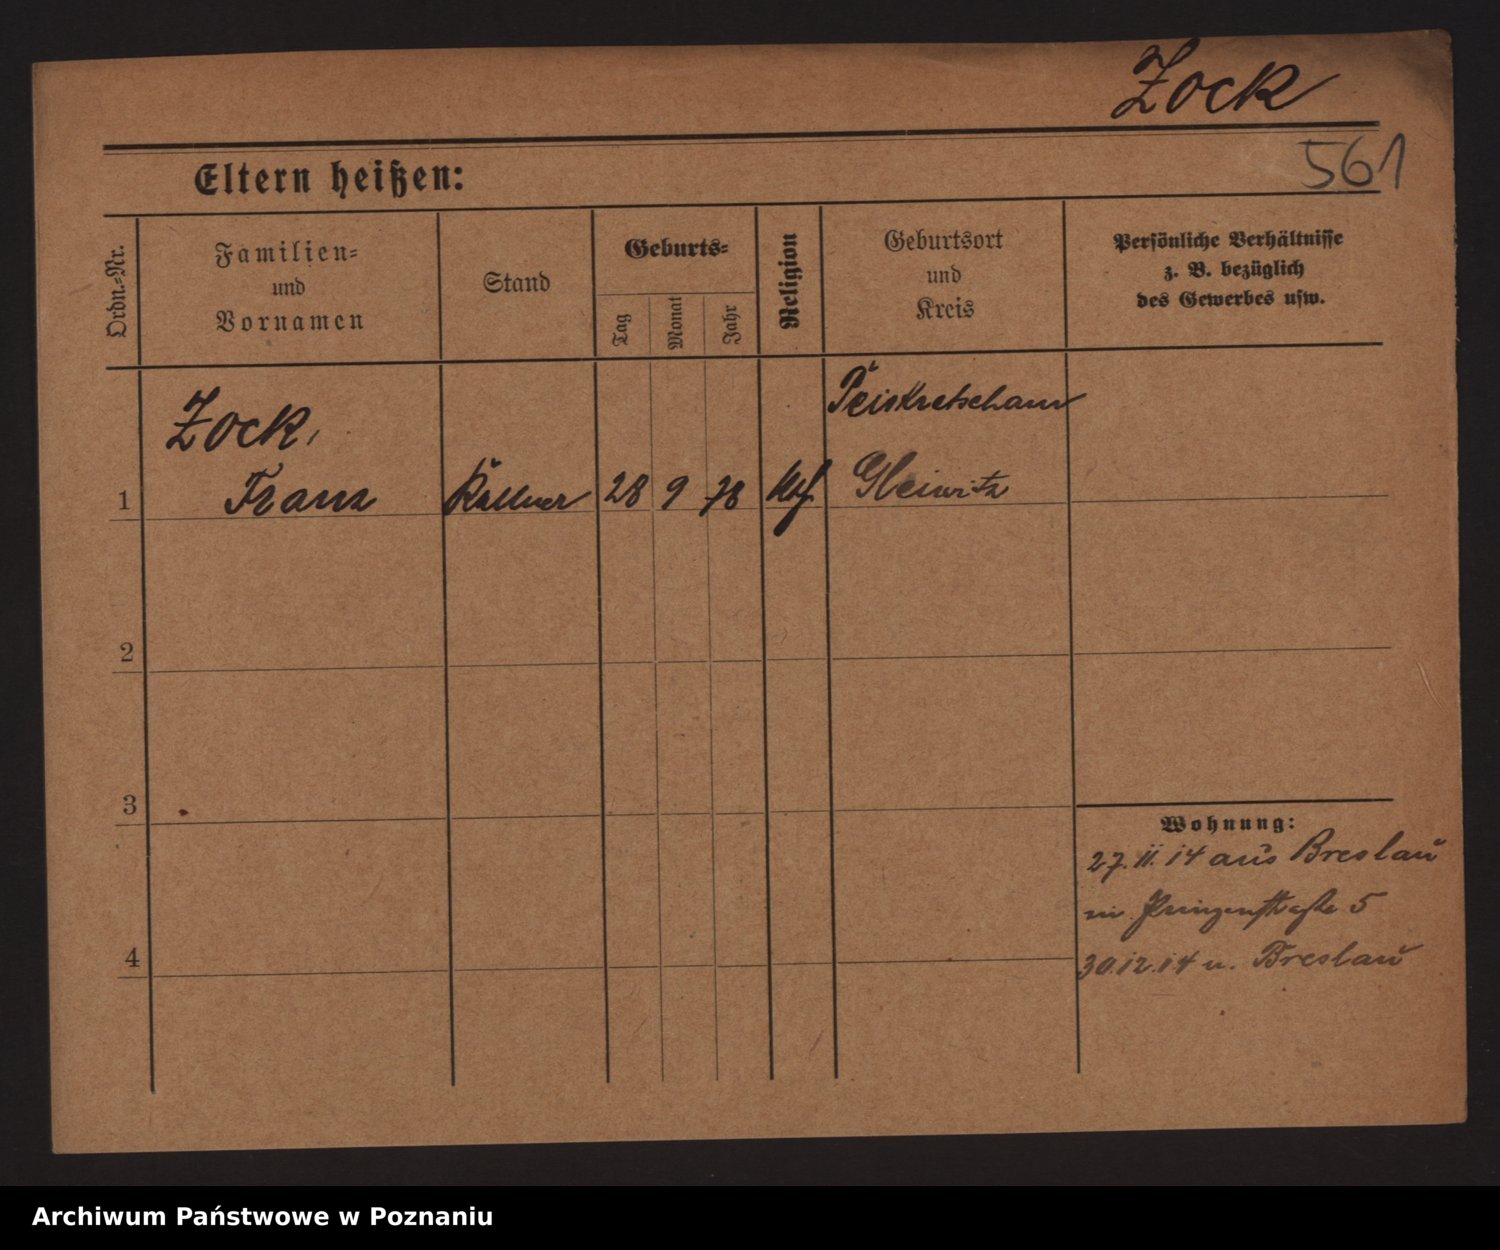 Zock
561
Eltern heißen:
Ordn.-Nr.
Familien-
und
Vornamen
Stand
Geburts-
Tag
Monat
Jahr
Religion
Geburtsort
und
Kreis
Persönliche Verhältnisse
z. B. bezüglich
des Gewerbes usw.
Zock,
Peiskretscham
1 Franz Kellner 28 9 78 Gleiwitz
2
3
Wohnung:
27.11.14 aus Breslau
Prinzenstraße 5
4
30.12.14 n. Breslau
Archiwum Państwowe w Poznaniu